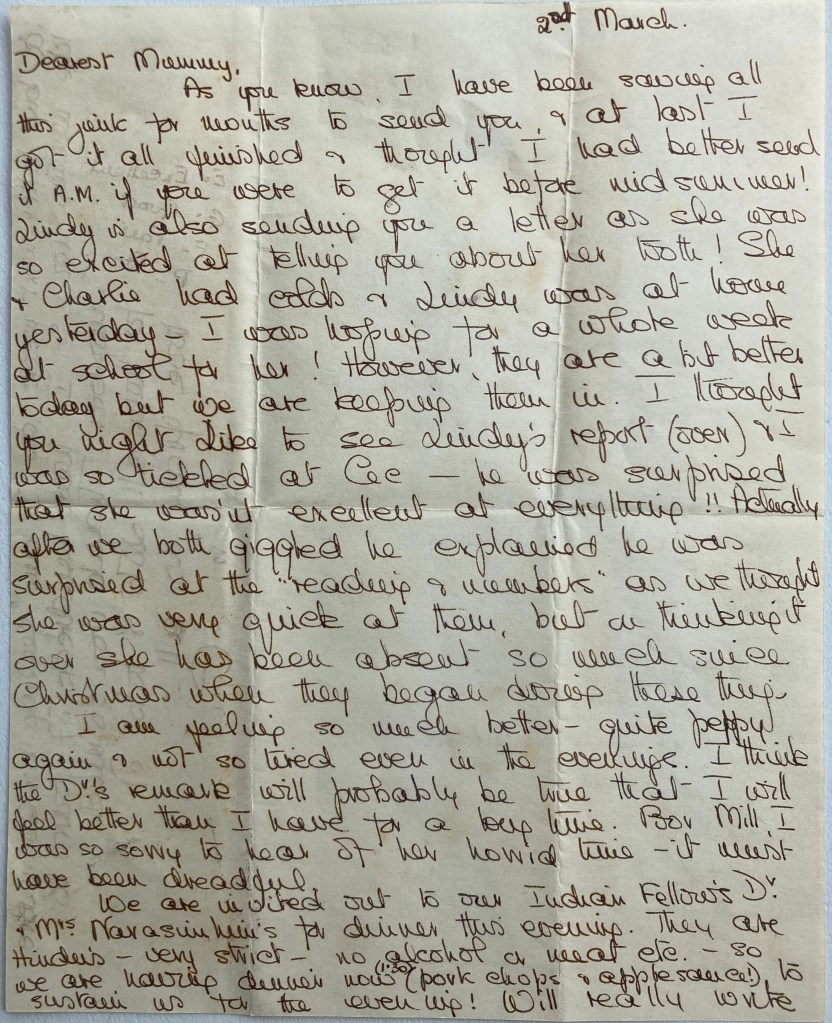 2nd March.
Dearest Mummy,
As you know, I have been saving all
this junk for months to send you, & at last I
got it all finished & thought I had better send
it A.M. if you were to get it before midsummer!
Lindy is also sending you a letter as she was
so excited at telling you about her tooth! She
& Charlie had colds & Lindy was at home
yesterday - I was hoping for a whole week
at school for her! However, they are a bit better
today but we are keeping them in. I thought
you might like to see Lindy's report (over) & I
was so tickled at Cee - he was surprised
that she wasn't excellent at everything!! Actually
after we both giggled he explained he was
surprised at the "reading & numbers" as we thought
she was very quick at them, but on thinking it
over she has been absent so much since
Christmas when they began doing these things
I am feeling so much better - quite peppy
again & not so tired even in the evenings. I think
the Dr.'s remark will probably be true that I will
feel better than I have for a long time. Poor Mill, I
was so sorry to hear of her horrid time - it must
have been dreadful.
We are invited out to our Indian Fellow's Dr.
& Mrs Narasimhin's for dinner this evening. They are
Hindu's - very strict - no alcohol or meat etc. - so
we are having dinner now (1.30) (pork chops & applesauce!) to
sustain us for the evening! Will really write